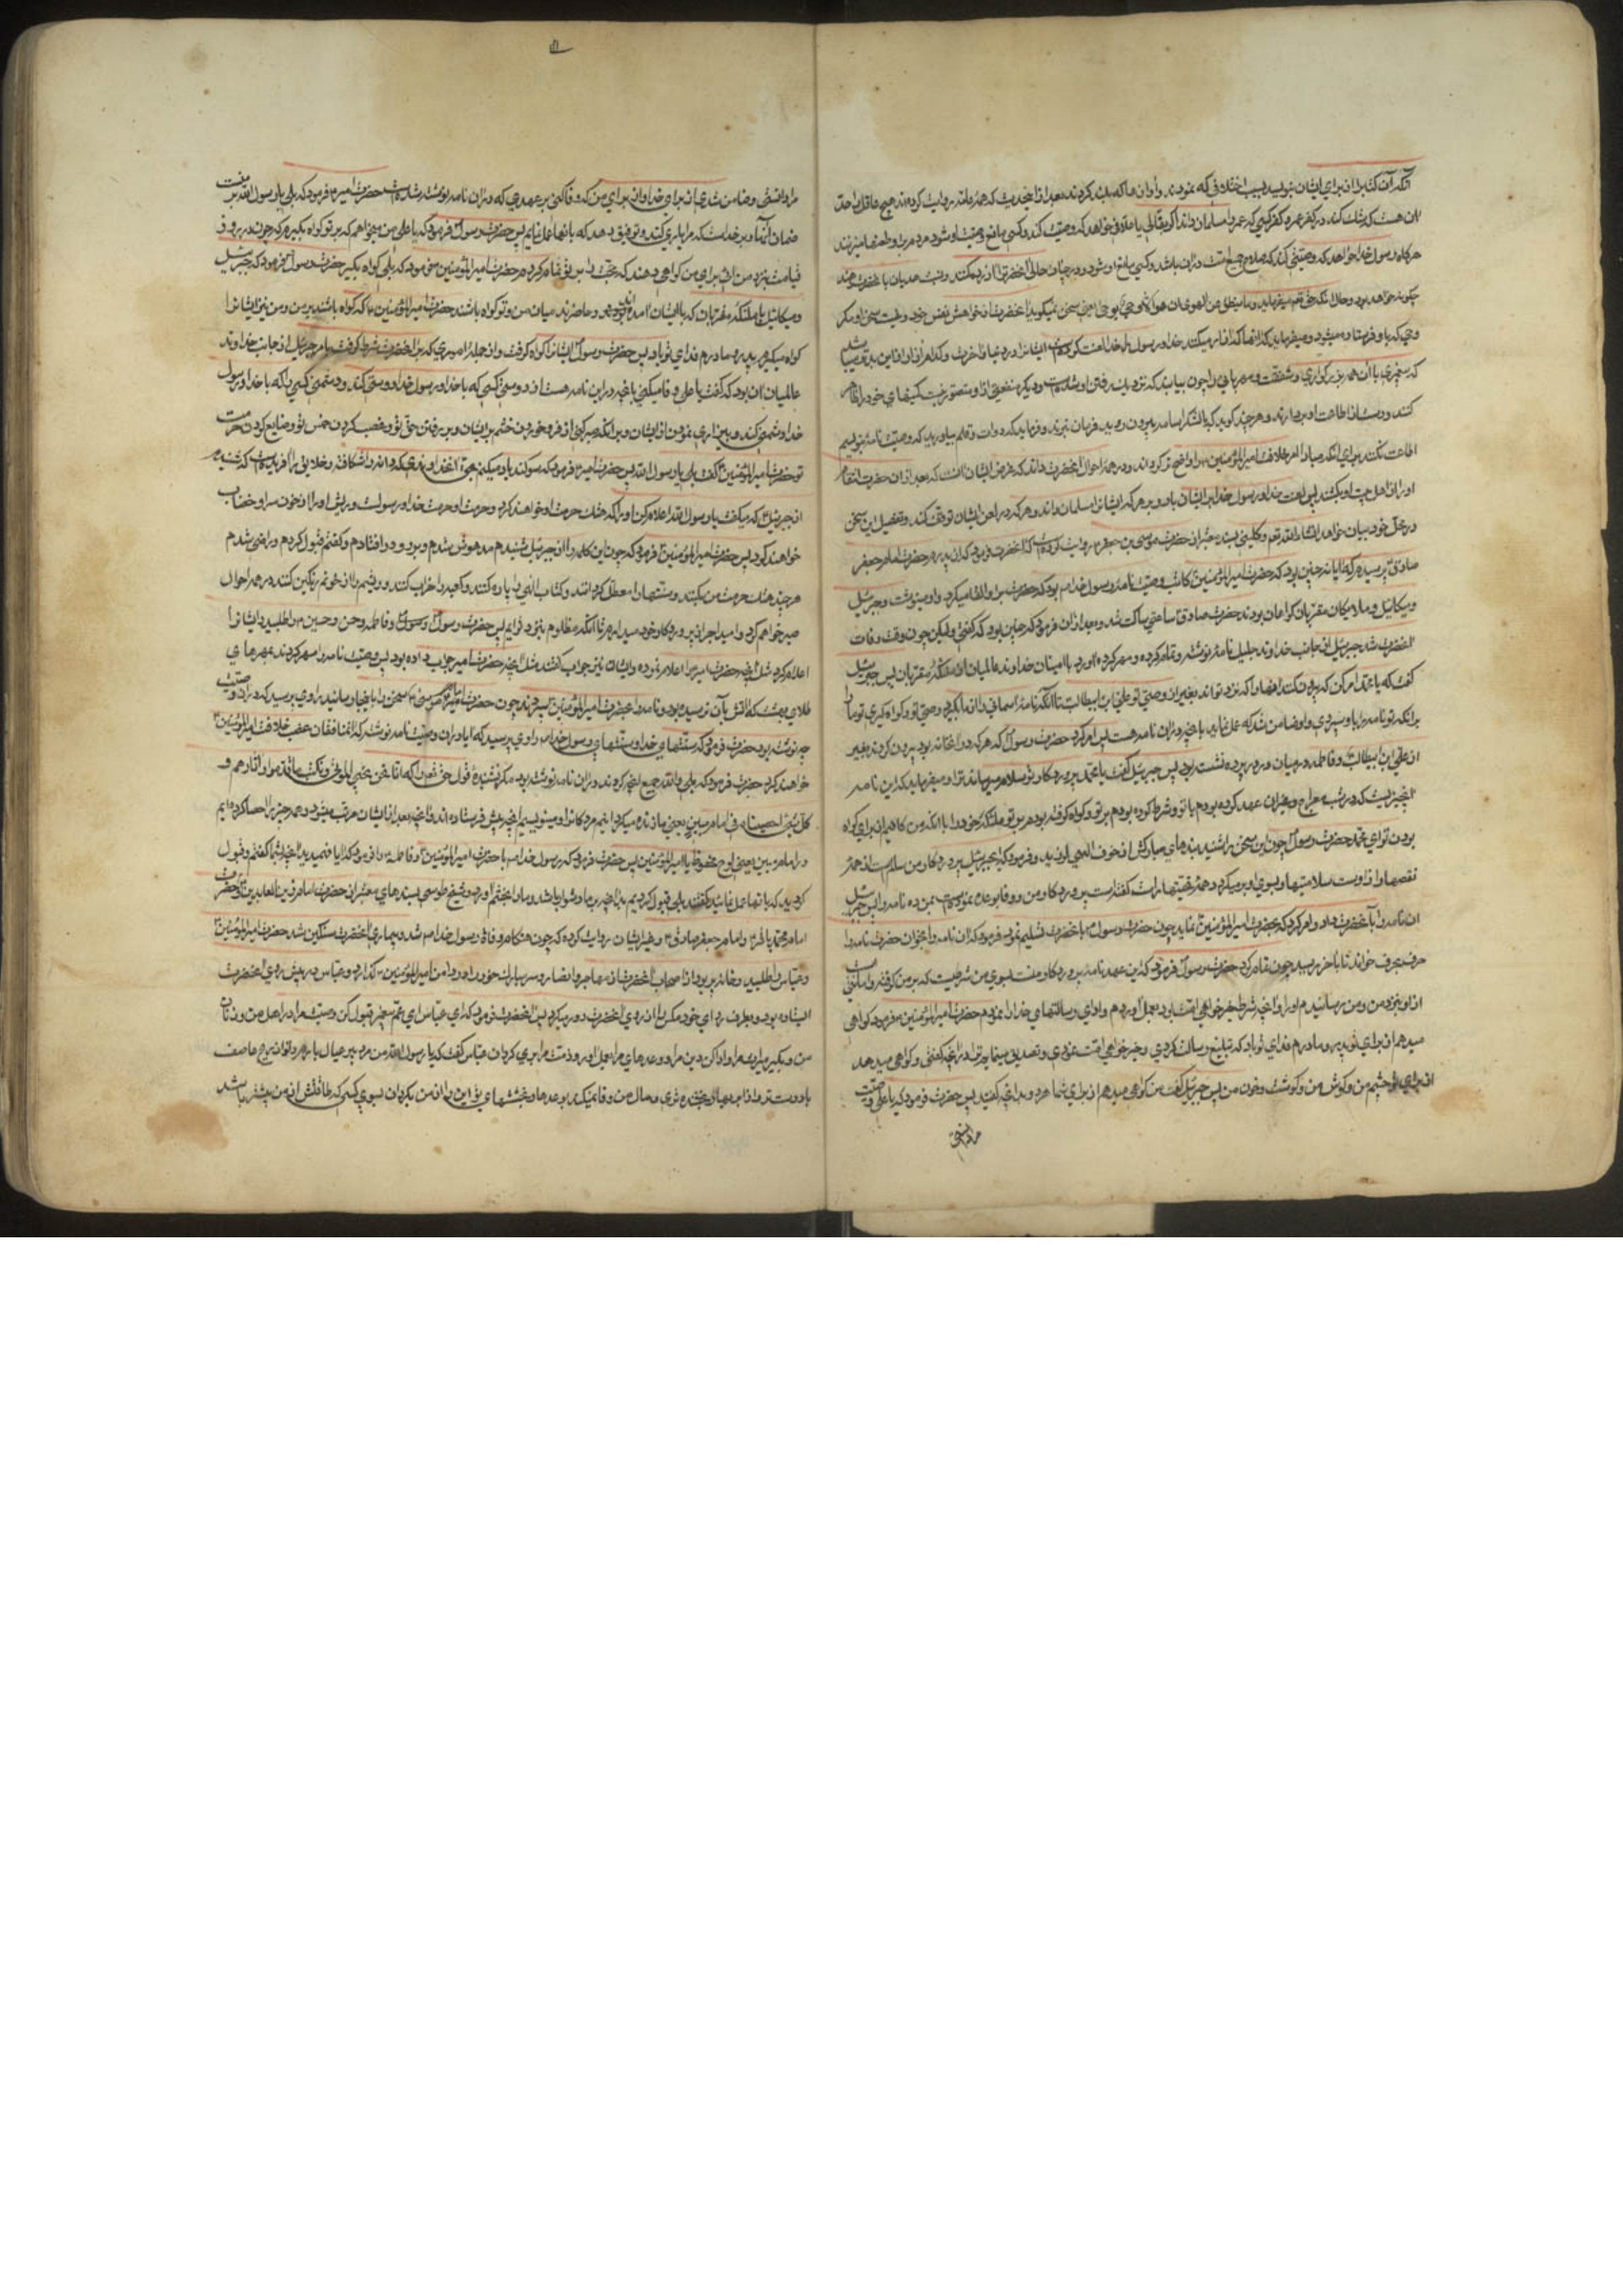 آنکه آن کتاب را از برای ایشان بنویسد بسبب اختلافی که نمودند و آوازها که بلند کردند بعد از این حدیث که همهٔ عامه روایت کرده‌اند هیچ عاقل را حد
آن هست که شک کند در کفر عمر و کفر کسی که عمر را مسلمان داند اگر بقالی یا علافی خواهد که وصیت کند و کسی مانع وصیت او شود مردم بر او طعنها میزنند
هرگاه رسول خدا خواهد که وصیتی کند که صلاح جمیع امت در آن باشد و کسی مانع او شود
چگونه خواهد بود و حال آنکه حق تعالی میفرماید وما ینطق عن الهوی ان هو الا وحی یوحی یعنی سخن نمیگوید آنحضرت از خواهش نفس خود و نیست سخن او مگر
وحی که باو فرستاده میشود
که پیغمبری با آن همه بزرگواری و شفقت و مهربانی را چون بیابند که نزدیک رفتن او شده است و دیگر منفعتی از او متصور نیست کینهای خود را ظاهر
کنند و دست از اطاعت او بردارند و هر چند گوید که با لشکر اسامه بیرون روید فرمان نبرند و فرماید که دوات و قلم بیاورید که وصیت نامه بنویسم
اطاعت نکنند برای آنکه مبادا امر خلافت امیرالمؤمنین را واضح تر گرداند و در همه احوال آنحضرت داند که غرض ایشان آنست که بعد از آن حضرت انتقام
او را از اهل بیت او بکشند پس لعنت خدا و رسول خدا بر ایشان باد و بر هر که ایشانرا مسلمان داند و هر که در لعن ایشان توقف کند و تفصیل این سخن
در محل خود بیان خواهد شد انشاء الله تعالی و کلینی بسند معتبر از حضرت موسی بن جعفر روایت کرده است که آنحضرت فرمود که از پدرم حضرت امام جعفر
صادق پرسیدم که آیا نه چنین بود که حضرت امیرالمؤمنین کاتب وصیت نامه رسول خدا بود که حضرت بر او القا میکرد و او مینوشت و جبرئیل
و میکائیل و ملائکه مقربان گواهان بودند حضرت صادق ساعتی ساکت شد و بعد از آن فرمود که چنین بود که گفتی ولیکن چون وقت وفات
آنحضرت شد جبرئیل از جانب خداوند جلیل نامهٔ نوشته و تمام کرده و مهر کرده آورد با امینان خداوند عالمیان از ملائکه مقربان پس جبرئیل
گفت که یا محمد امر کن که بیرون کنند آنها را که نزد تواند بغیر از وصی تو علی بن ابیطالب تا آنکه نامهٔ آسمانی را از ما بگیرد وصی تو و گواه گیری تو ما را
بر آنکه تو نامه را باو سپردی و او ضامن شد که عمل نماید بآنچه در آن نامه هست پس امر کرد حضرت رسول که هر که در آنخانه بود بیرون کردند بغیر
از علی بن ابیطالب و فاطمه در میان در و پرده نشسته بود پس جبرئیل گفت یا محمد پروردگار تو سلام میرساند ترا و میفرماید که این نامه
آنچیزیست که در شب معراج و غیر آن عهد کرده بودم با تو و شرط کرده بودم بر تو و گواه گرفته بودم بر تو ملائکه خود را با آنکه من کافیم از برای گواه
بودن تو ای محمد حضرت رسول چون این سخن را شنید بندهای مبارکش از خوف الهی لرزید و فرمود که ای جبرئیل پروردگار من سالم است از همهٔ
نقصها و از اوست سلامتیها و بسوی او برمیگردد همهٔ تحیتها راست گفته است پروردگار من و وفا بوعده نموده است بمن ده نامه را پس جبرئیل
آن نامه را بآنحضرت داد و امر کرد که بحضرت امیرالمؤمنین نماید چون حضرت رسول بآنحضرت تسلیم نمود فرمود که این نامه را بخوان حضرت نامه را
حرف بحرف خواند تا بآخر رسید چون تمام کرد حضرت رسول فرمود که این عهدنامهٔ پروردگار منست بسوی من شرطیست که بر من گرفته و امانتی
از او نزد من و من رسانیدم او را و آنچه شرط خیر خواهی امت بود بعمل آوردم و ادای رسالتهای خدا را نمودم حضرت امیرالمؤمنین فرمود که گواهی
میدهم از برای تو پدر و مادرم فدای تو باد که تبلیغ رسالت کردی و خیر خواهی امت نمودی و تصدیق مینمایم ترا در آنچه گفتی و گواهی میدهد
از برای تو چشم من و گوش من و گوشت و خون من پس جبرئیل گفت من گواهی میدهم از برای شما هر دو بر آنچه گفتید پس حضرت فرمود که یا علی وصیت
مرا دانستی
مرا دانستی و ضامن شدی از برای خدا و از برای من که وفا کنی بر عهدی که در آن نامه نوشته شده است حضرت امیر فرمود که بلی یا رسول الله بر منست
ضمان آنها و بر خداست که مرا یاری کند و توفیق دهد که بآنها عمل نمایم پس حضرت رسول فرمود که یا علی من میخواهم که بر تو گواه بگیرم که چون در روز
قیامت بنزد من آئی برای من گواهی دهند که حجت را بر تو تمام کردم حضرت امیرالمؤمنین فرمود که بلی گواه بگیر حضرت رسول فرمود که جبرئیل
و میکائیل با ملائکه مقربان که با ایشان آمده‌اند و حاضرند میان من و تو گواه باشند حضرت امیرالمؤمنین گفت که گواه باشند بر من و من نیز ایشانرا
گواه میگیرم پدر و مادرم فدای تو باد پس حضرت رسول ایشانرا گواه گرفت و از جمله امری که بر آنحضرت شرط گرفت بامر جبرئیل از جانب خداوند
عالمیان آن بود که گفت یا علی وفا میکنی بآنچه در این نامه هست از دوستی کسی که با خدا و رسول خدا دوستی کند و دشمنی کسی که با خدا و رسول
خدا دشمنی کند و بیزاری نمودن از ایشان و بر آنکه صبر کنی از فرو خوردن خشم بر ایشان و بر رفتن حق تو و غصب کردن خمس تو و ضایع کردن حرمت
تو حضرت امیرالمؤمنین گفت بلی یا رسول الله پس حضرت امیر فرمود که سوگند یاد میکنم بحق آن خداوندی که دانه را شکافته و خلایق را آفریده است که شنیدم
از جبرئیل که میگفت یا رسول الله اعلام کن او را که هتک حرمت او خواهند کرد و حرمت او حرمت خدا و رسول است و ریش او را از خون سر او خضاب
خواهند کرد پس حضرت امیرالمؤمنین فرمود که چون این کلمه را از جبرئیل شنیدم مدهوش شدم و بر رو در افتادم و گفتم قبول کردم و راضی شدم
هر چند هتک حرمت من بکنند و سنتها را معطل گردانند و کتاب الهی را پاره کنند و کعبه را خراب کنند و ریشم را از خونم رنگین کنند در همه احوال
صبر خواهم کرد و امید اجر از پروردگار خود میدارم تا آنکه مظلوم بنزد تو آیم پس حضرت رسول فاطمه و حسن و حسین را طلبید و ایشانرا
اعلام کرد مثل آنچه حضرت امیر را اعلام نموده و ایشان نیز جواب گفتند مثل آنچه حضرت امیر جواب داده بود پس وصیت نامه را مهر کردند بمهرهای
طلای بهشت که آتش بآن نرسیده بود و نامه را بحضرت امیرالمؤمنین سپردند چون حضرت امام موسی سخن را باینجا رسانید راوی پرسید که در آن وصیت
چه نوشته بود حضرت فرمود که سنتهای خدا و سنتهای رسول خدا راوی پرسید که آیا در آن وصیت نامه نوشته بود که منافقان غصب خلافت امیرالمؤمنین
خواهند کرد حضرت فرمود که بلی والله جمیع آنچه کردند در آن نامه نوشته بود مگر نشنیدهٔ قول حق تعالی را که انا نحن نحیی الموتی ونکتب ما قدموا وآثارهم و
کل شیء احصیناه فی امام مبین یعنی ما زنده میگردانیم مردگانرا و مینویسیم آنچه پیش فرستاده‌اند و آنچه بعد از ایشان مرتب میشود و همه چیز را احصا کرده‌ایم
در امام مبین یعنی لوح محفوظ یا امیرالمؤمنین پس حضرت فرمود که رسول خدا با حضرت امیرالمؤمنین و فاطمه فرمود که آیا فهمیدید آنچه بشما گفتم و قبول
کردید که بآنها عمل نمائید گفتند بلی قبول کردیم و شیخ طوسی بسندهای معتبر از حضرت امام زین العابدین و حضرت
امام محمد باقر و امام جعفر صادق و غیر ایشان روایت کرده که چون هنگام وفات رسول خدا شد و بیماری آنحضرت سنگین شد حضرت امیرالمؤمنین
و عباس را طلبید و خانه پر بود از اصحاب آنحضرت از مهاجر و انصار و سر مبارک خود را در دامن امیرالمؤمنین گذارد و عباس در پیش روی آنحضرت
ایستاده بود و بطرف ردای خود مگس را از روی آنحضرت دور میکرد پس آنحضرت فرمود که ای عباس ای عم پیغمبر قبول کن وصیت مرا در اهل من و زنان
من و بگیر میراث مرا و ادا کن دین مرا و وعدهای مرا بعمل آور و ذمت مرا بری گردان عباس گفت که یا رسول الله من مرد پیر عیال بارم و تو از ریح عاصف
باد دست تر و از ابر بهار بخشنده تری و مال من وفا نمیکند بوعدها و بخششهای تو این را از من بگردان بسوی کسی که طاقتش از من بیشتر باشد